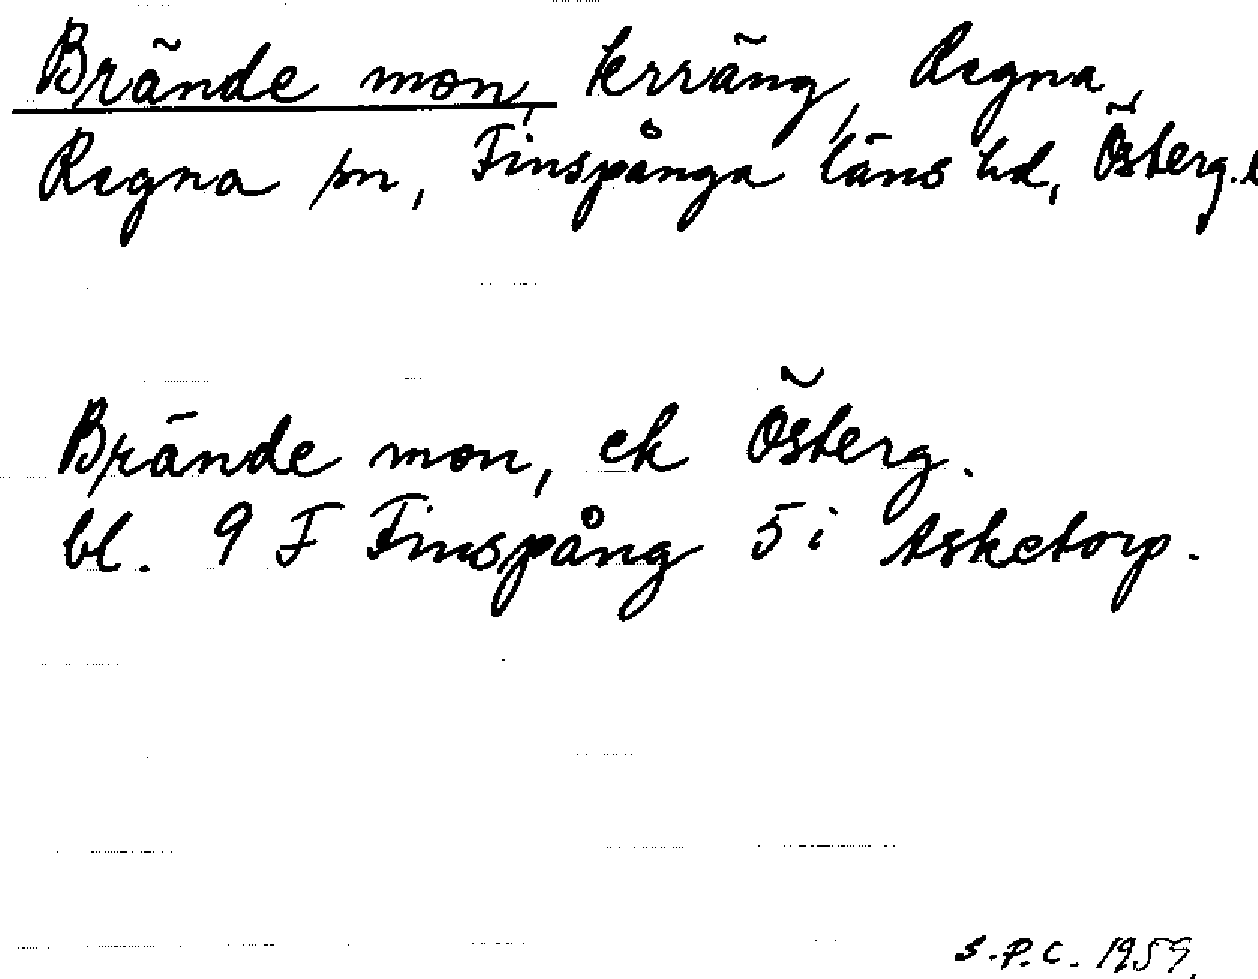 Brände mon, terräng, Regna,
Regna sn, Finspånga läns hd, Österg. l
Brände mon, ek Österg.
bl. 9 F Finspång 5 i Asketorp.
S.P.C. 1959.